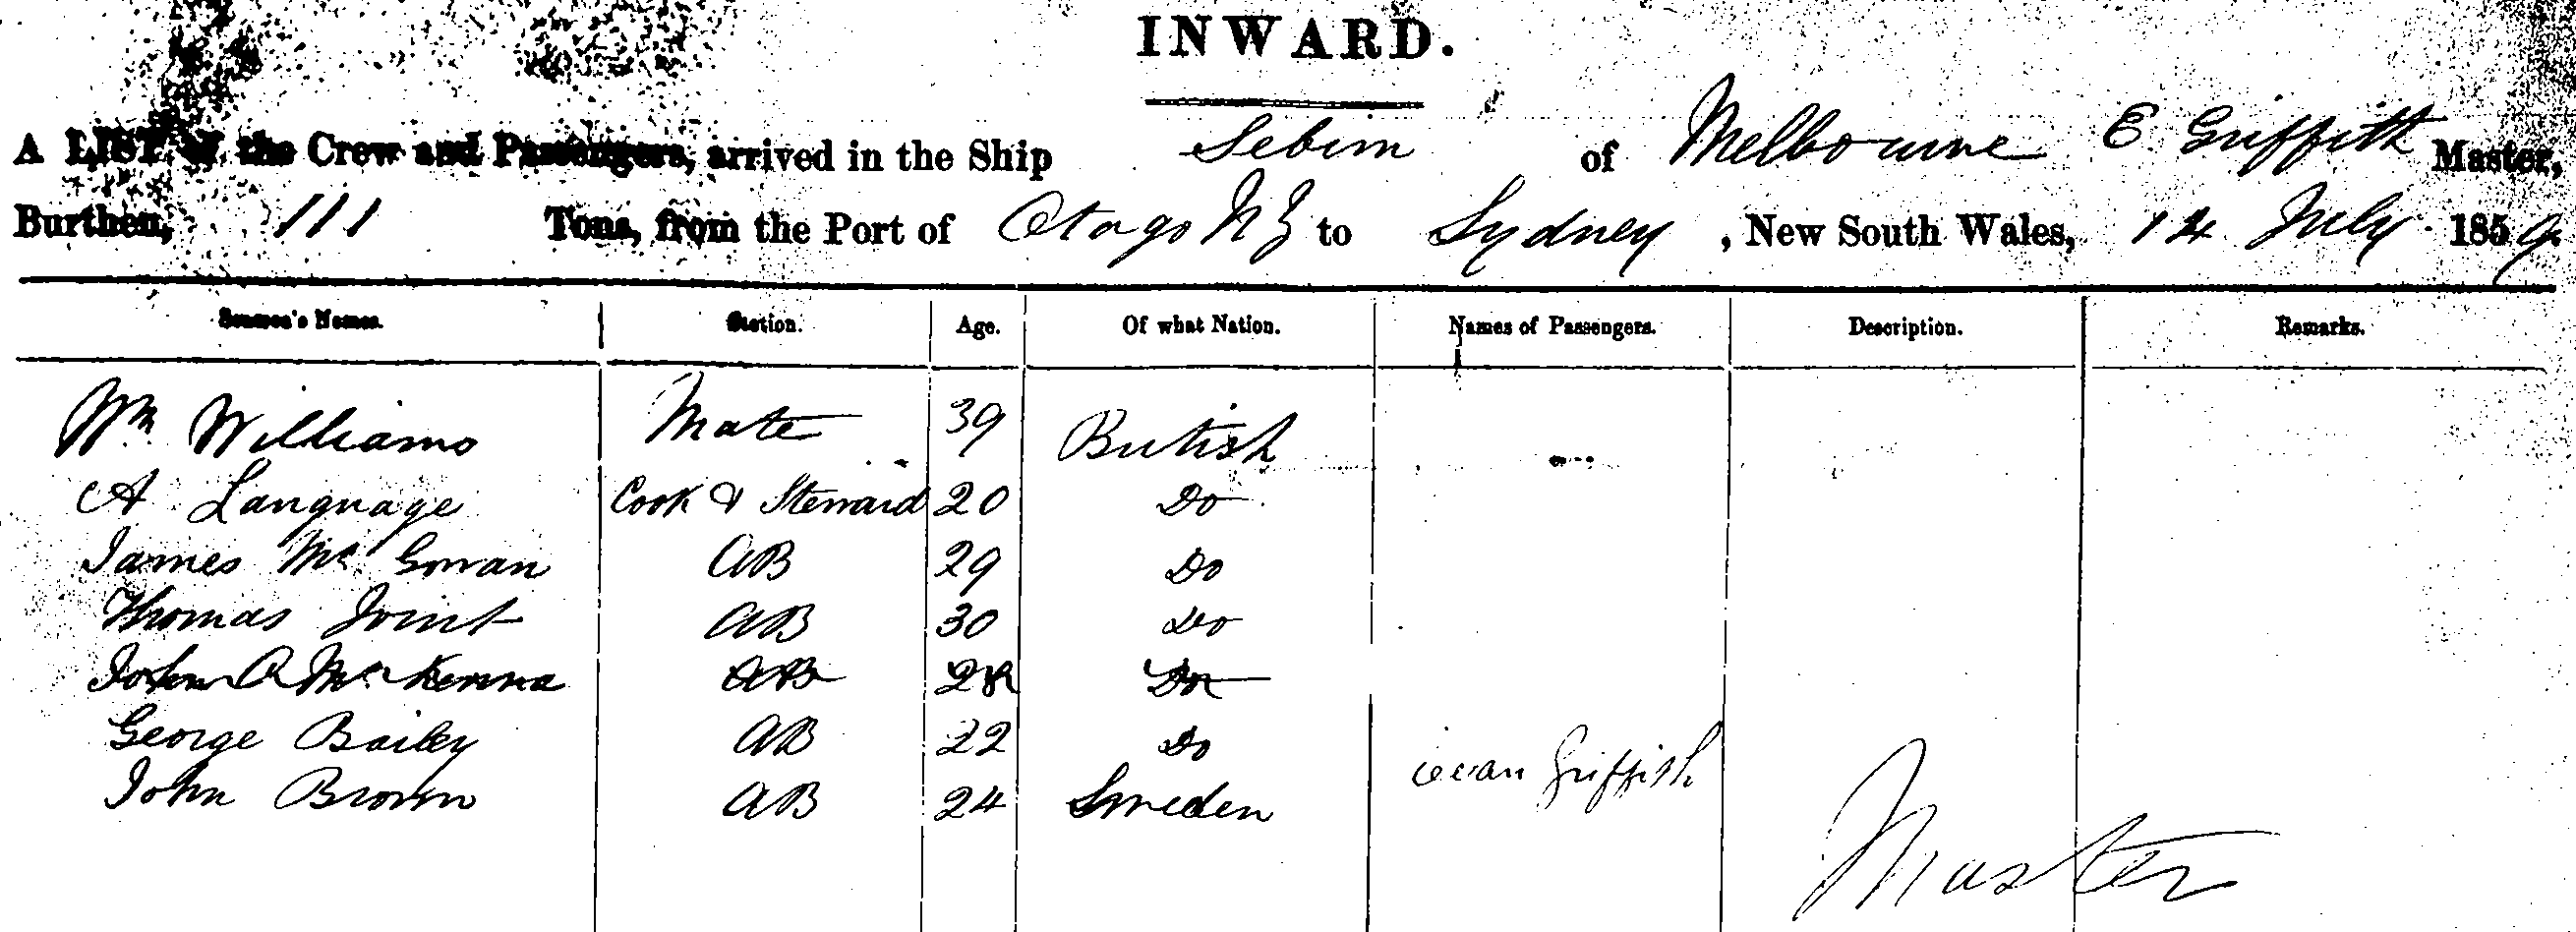 INWARD.
A LIST of the Crew and Passengers, arrived in the Ship Sebim of Melbourne E Griffith Master,
Burthen, 111 Tons, from the Port of Otago NZ to Sydney, New South Wales, 14 July 1859.
Seamen's Names. Station. Age. Of what Nation. Names of Passengers. Description. Remarks.
Wm Williams Mate 39 British
A Language Cook & Steward 20 Do
James Mc Gowan AB 29 Do
Thomas Joint AB 30 Do
John A McKenna AB 28 Do
George Bailey AB 22 Do
John Brown AB 24 Sweden
Evan Griffith
Master